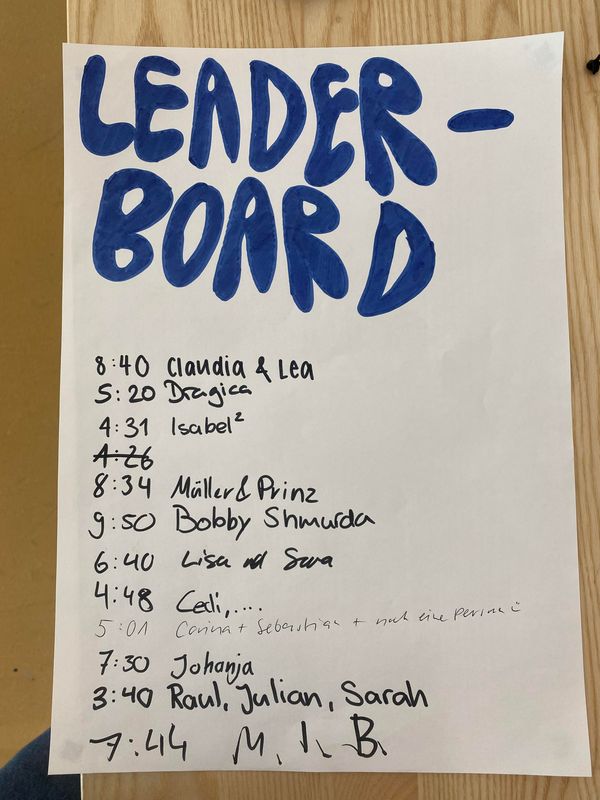 LEADER-
BOARD
8:40 Claudia & Lea
5:20 Dragica
4:31 Isabel²
4:26
8:34 Müller & Prinz
9:50 Bobby Shmurda
6:40 Lisa nd Sara
4:48 Cedi,....
5:01 Carina + Sebastian + noch eine Person :)
7:30 Johanja
3:40 Raul, Julian, Sarah
7:44 M. I. B.